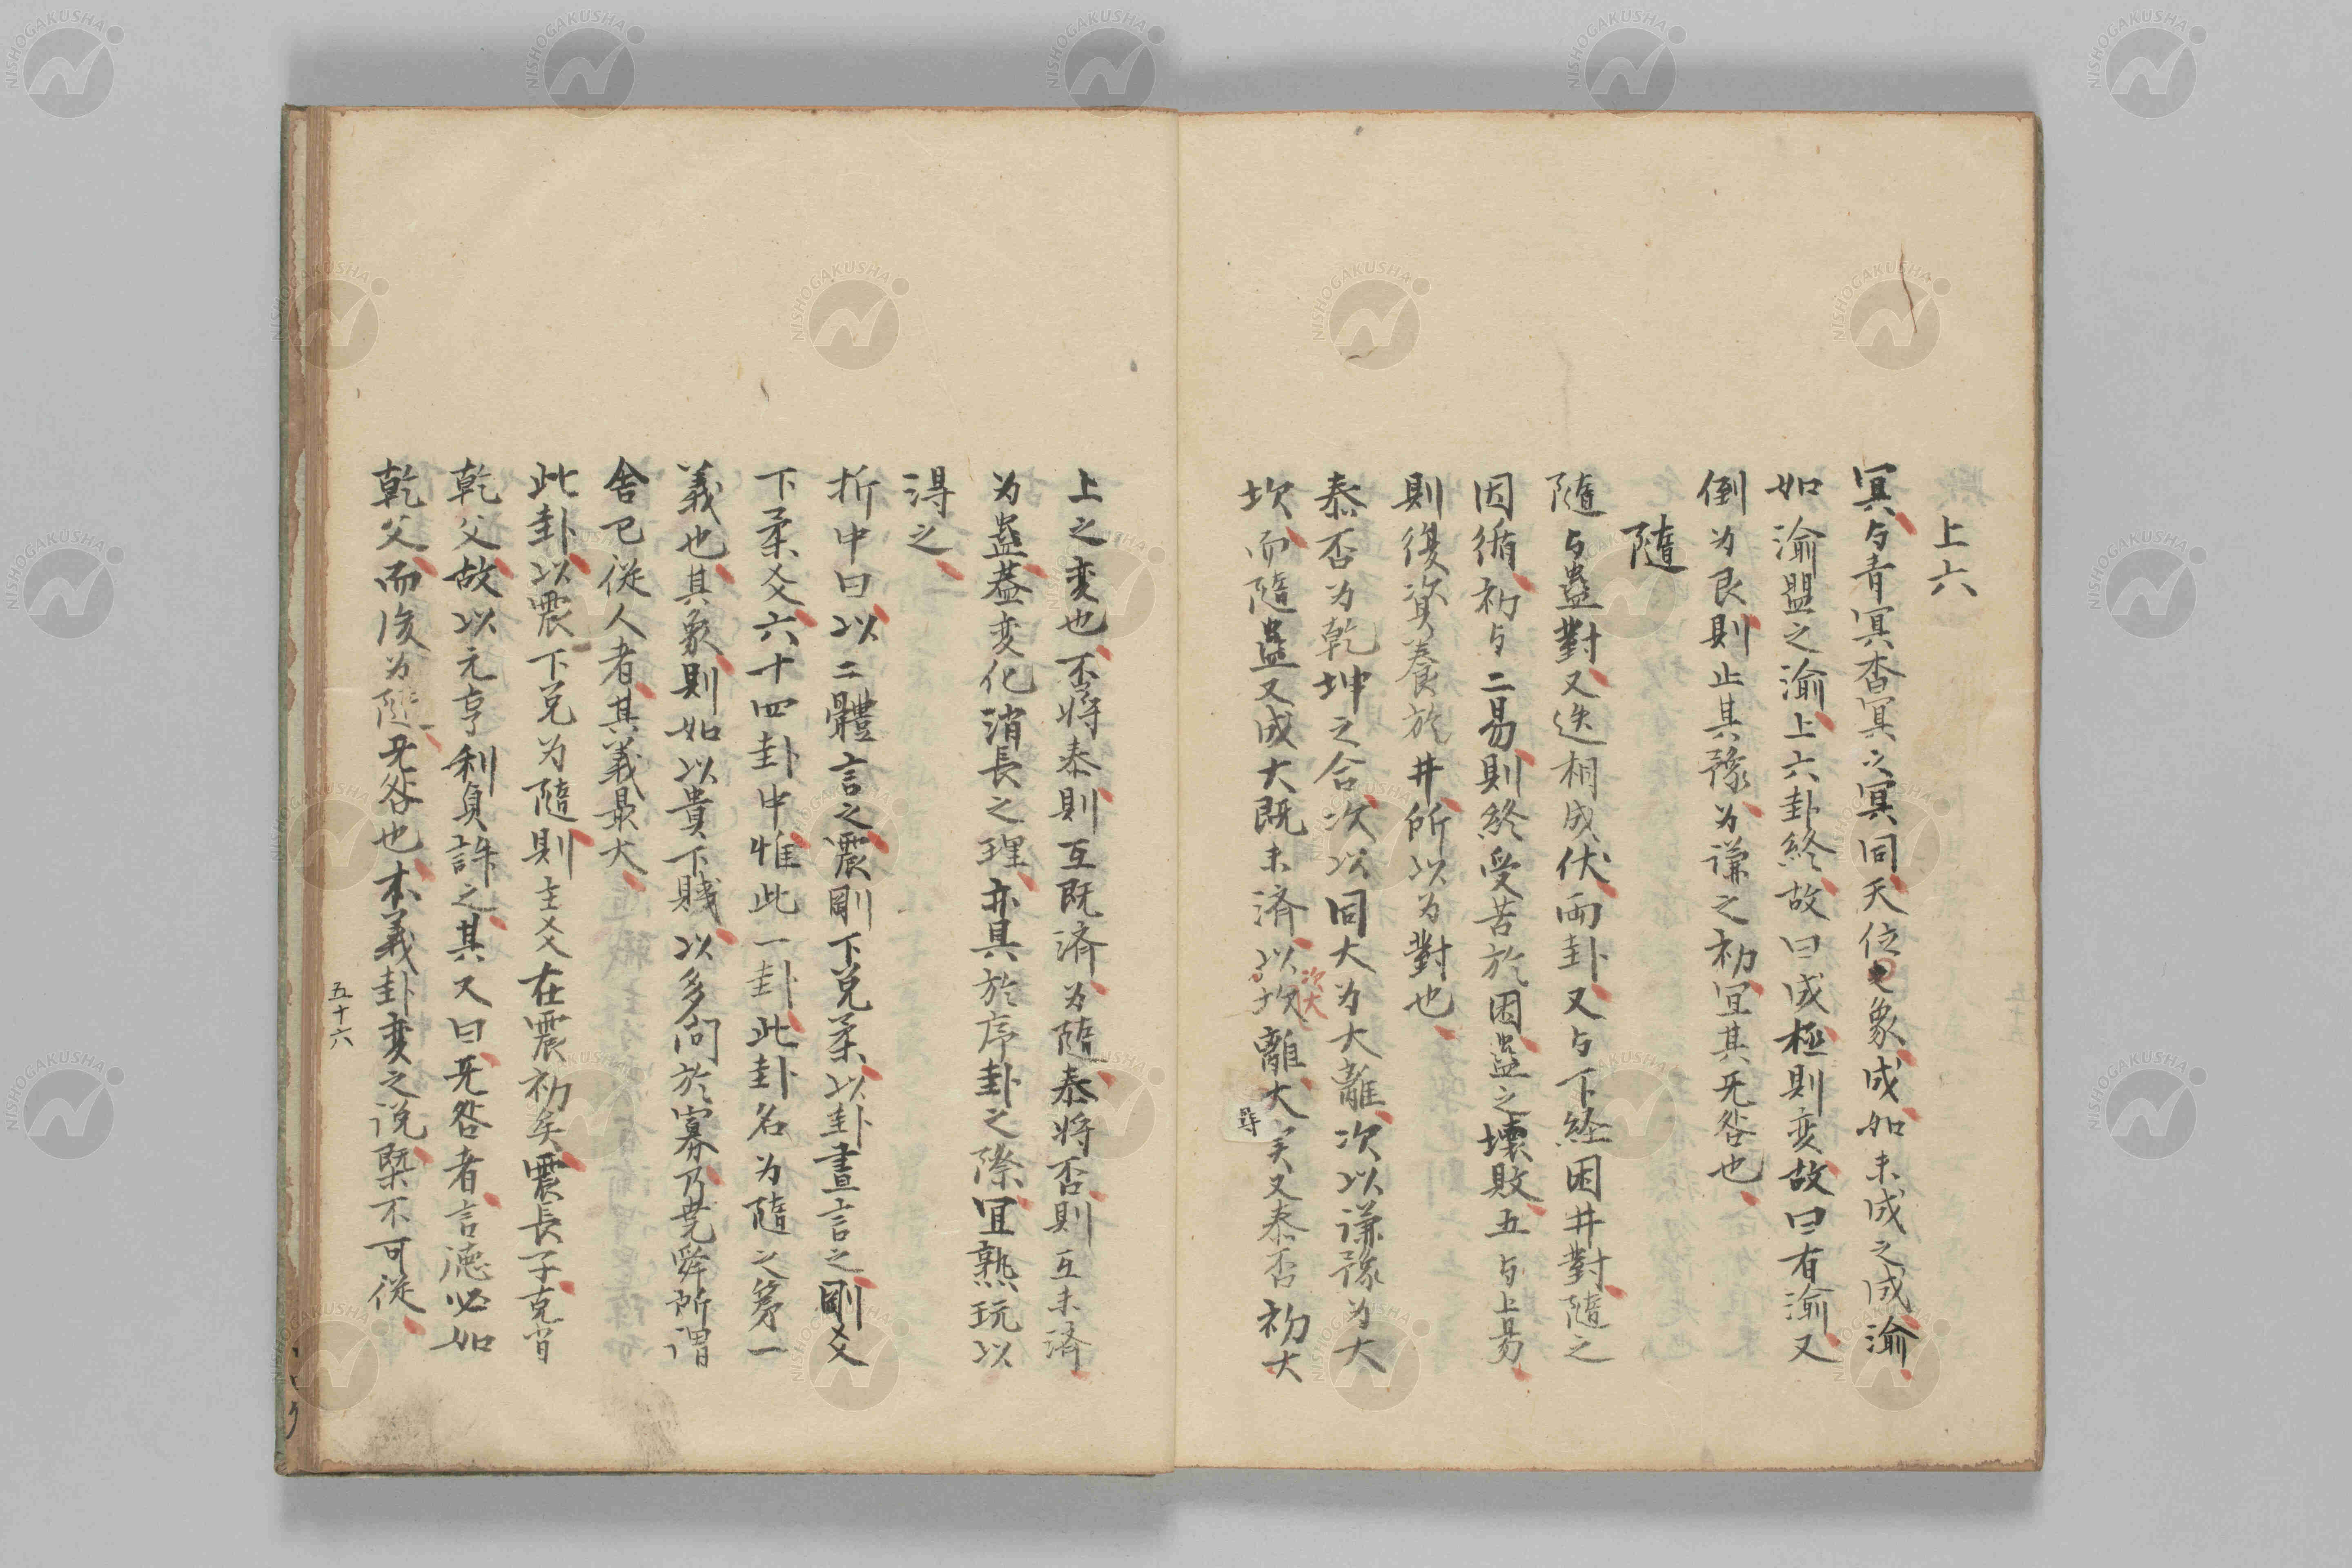 上六
冥与青冥杳冥之冥同天位之象成如未成之成渝
如渝盟之渝上六卦終故曰成極則変故曰有渝又
倒为艮則止其豫为謙之初宜其无咎也
隨
隨与蠱對又迭相成伏両卦又与下経困井對隨之
因循初与二易則終受苦於困蠱之壊敗五与上易
則復資養於井所以为對也
泰否为乾坤之合次以同大为大離次以謙豫为大
坎而隨蠱又成大既未済以坎離大又泰否初大
次大
上之変也否将泰則互既済为隨泰将否則互未済
为蠱蓋変化消長之理亦具於序卦之際宜熟玩以
得之
折中曰以二體言之震剛下兌柔以卦畫言之剛爻
下柔爻六十四卦中惟此一卦此卦名为隨之第一
義也其象則如以貴下賤以多問於寡乃堯舜所謂
舍已従人者其義最大
此卦以震下兌为隨則主爻在震初矣震長子克肖
乾父故以元亨利貞許之其又曰无咎者言徳必如
乾父而後为隨无咎也本義卦変之说槩不可従
五十六